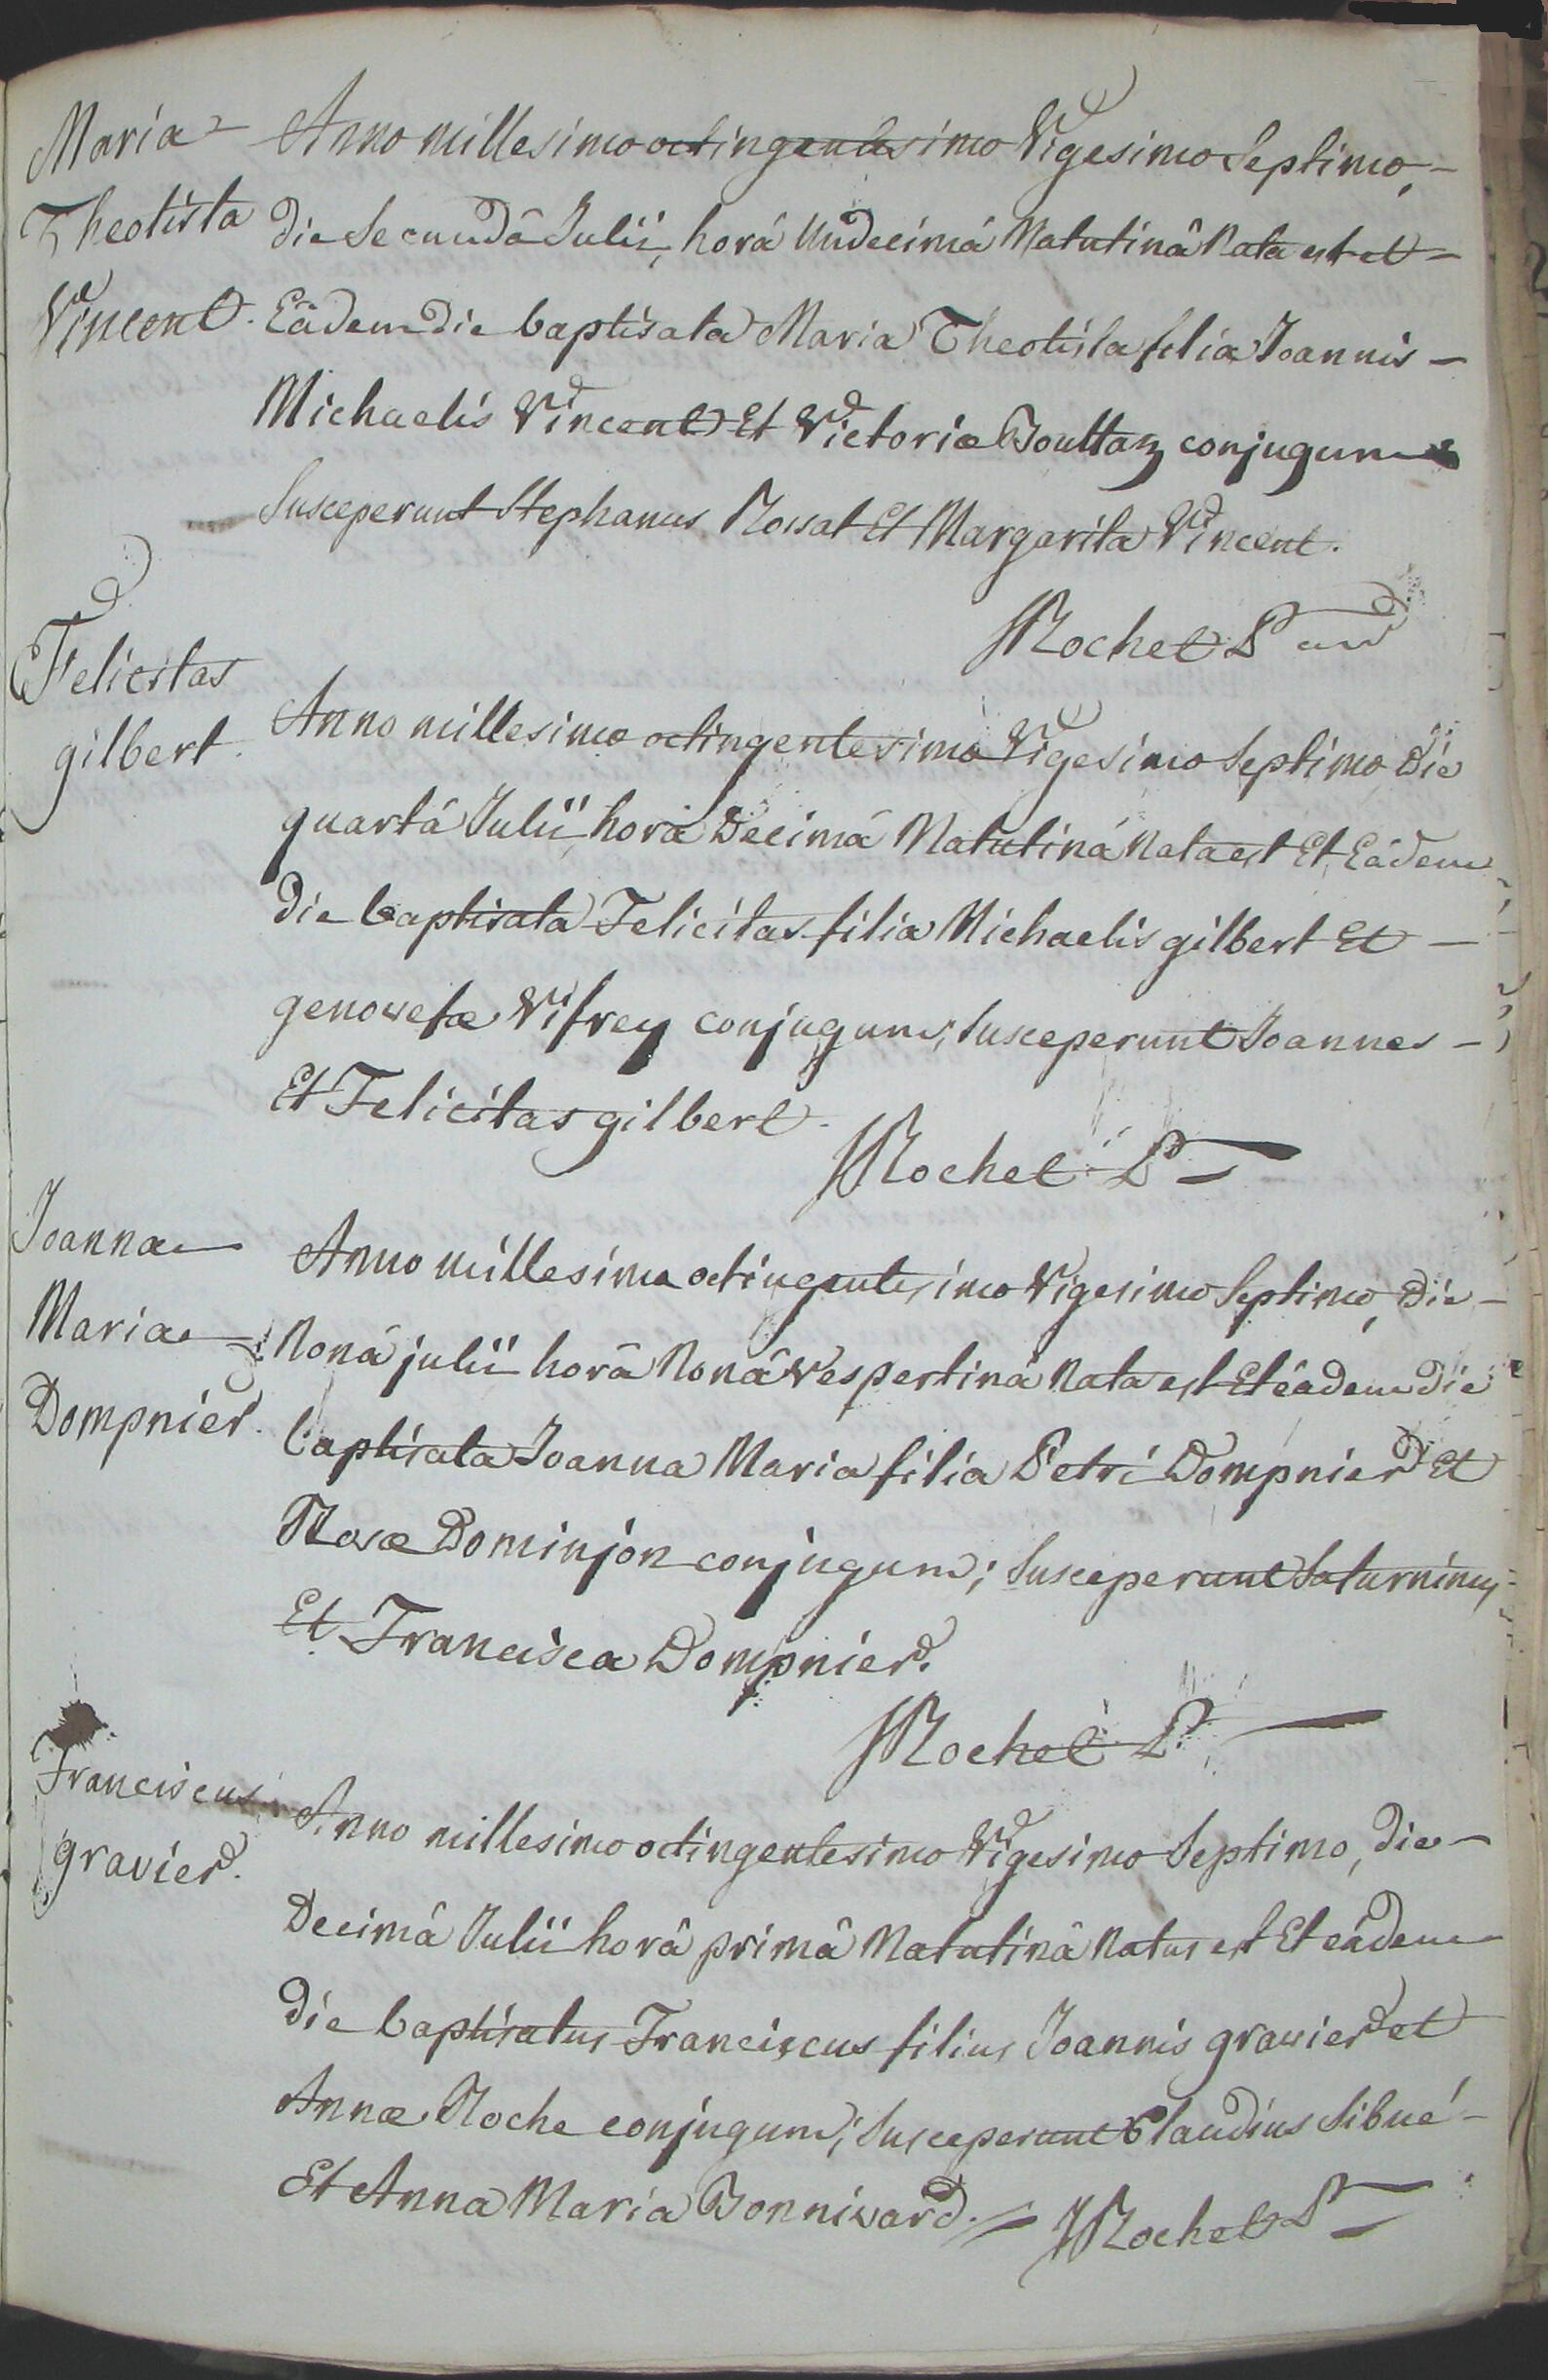 Maria
Theotista
Vincent.
Anno millesimo octingentesimo Vigesimo Septimo,
die Secundâ Julii, horá Undecimá Matutinâ Nata est et
Eâdem die baptisata Maria Theotista filia Joannis
Michaelis Vincent Et Victoriæ Boultaz conjugum
Susceperunt Stephanus Rossat Et Margarita Vincent.
Rochet
Felicitas
gilbert.
Anno millesimo octingentesimo Vigesimo Septimo Die
quartá Julii, horâ Decimâ Matutiná Nata est Et Eâdem
die baptisata Felicitas filia Michaelis gilbert Et
genovefæ Vifrey conjugum; Susceperunt Joannes
Et Felicitas gilbert.
Rochet
Joanna
Maria
Dompnier.
Anno millesimo octingentesimo Vigesimo Septimo, Die
Noná julii horâ Nonâ Vespertiná Nata est Et eâdem die
baptisata Joanna Maria filia Petri Dompnier Et
Rosæ Dominjon conjugum; Susceperunt Saturninus
Et Francisca Dompnier.
Rochet
Franciscus
gravier.
Anno millesimo octingentesimo Vigesimo Septimo, Die
Decimâ Julii horâ primâ Matutinâ Natus est Et eâdem
die baptisatus Franciscus filius Joannis gravier et
Annæ Roche conjugum; Susceperunt Claudius Sibué
Et Anna Maria Bonnivard. Rochet